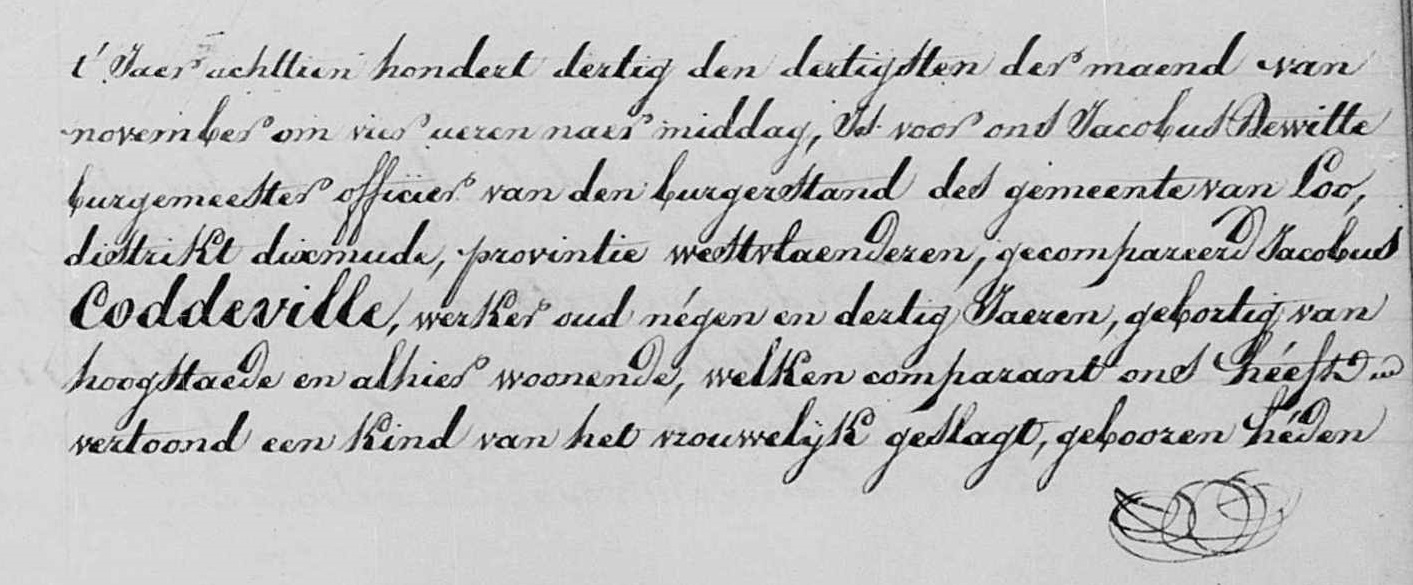 t' Jaer achttien hondert dertig den dertigsten der maend van
november om vier ueren naer middag, Is voor ons Jacobus Dewitte
burgemeester officier van den burgerstand des gemeente van Loo,
distrikt dixmude, provintie westvlaenderen, gecompareerd Jacobus
Coddeville, werker oud négen en dertig Jaeren, gebortig van
hoogstaede en alhier woonende, welken comparant ons hééft
vertoond een kind van het vrouwelijk geslagt, gebooren héden